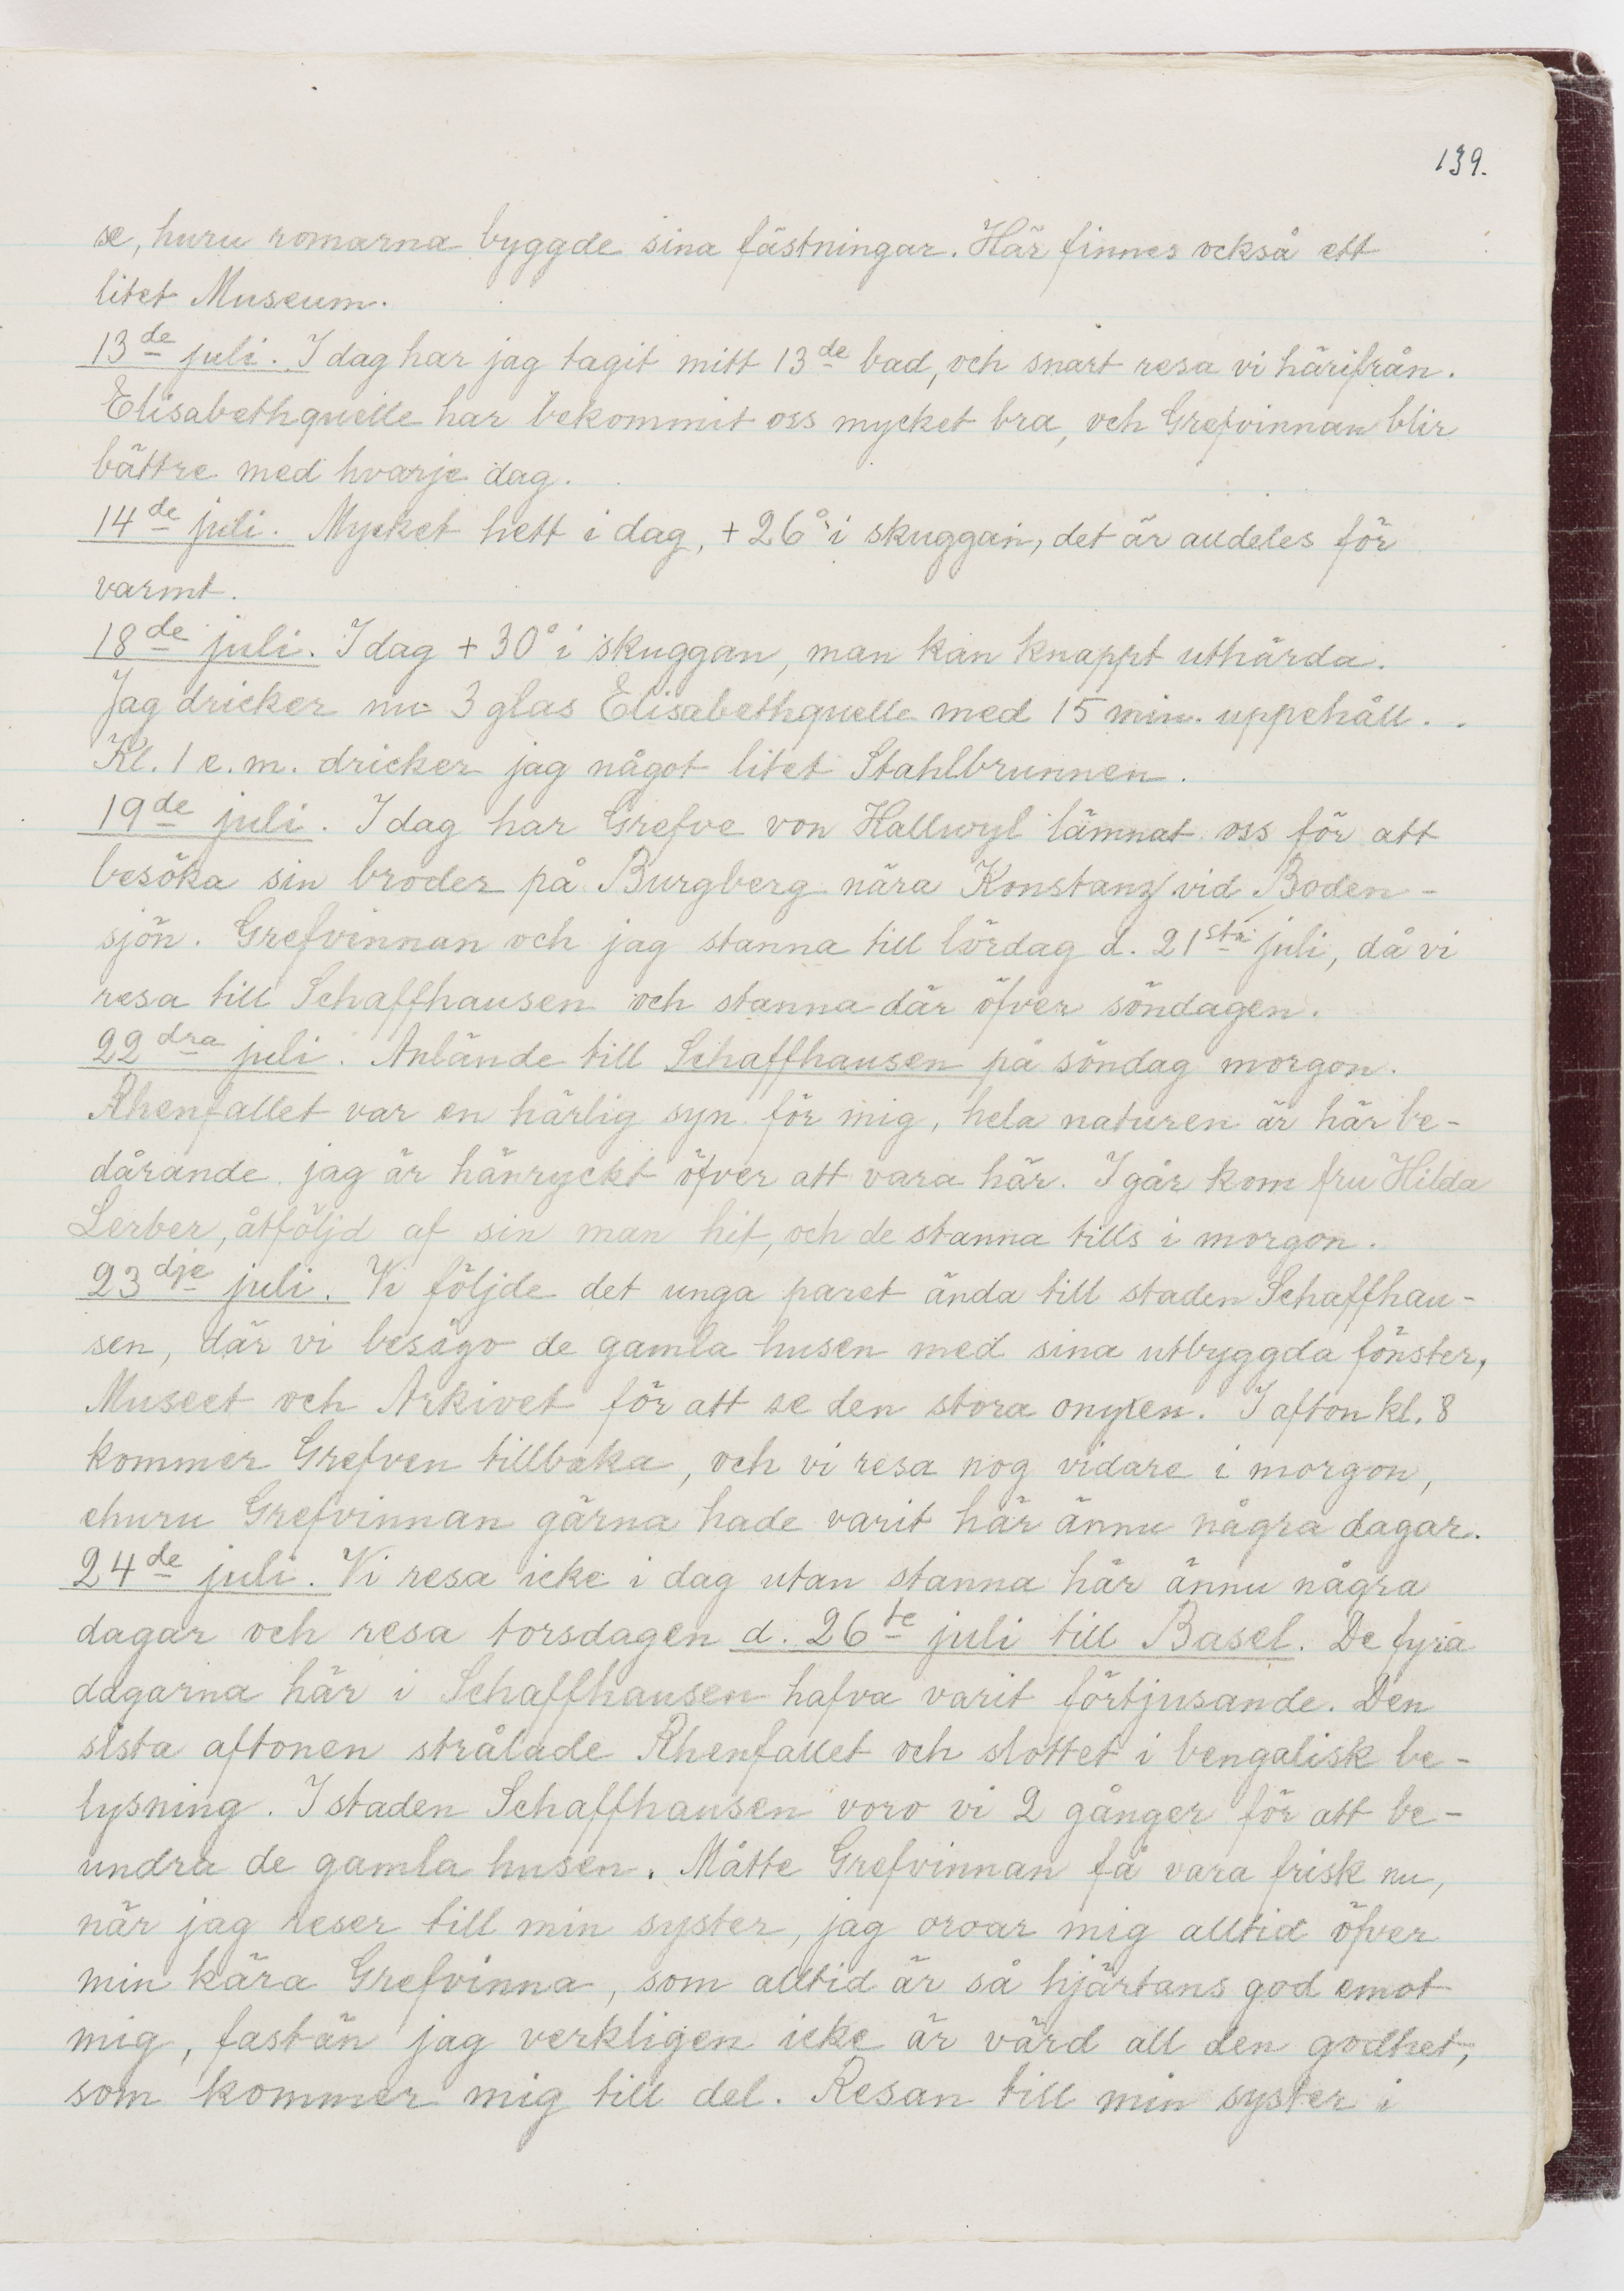 139.
se, huru romarna byggde sina fästningar. Här finnes också ett
litet Museum.
13de juli. I dag har jag tagit mitt 13de bad, och snart resa vi härifrån.
Elisabethquelle har bekommit oss mycket bra, och Grefvinnan blir
bättre med hvarje dag.
14de juli. Mycket hett i dag, +26° i skuggan, det är alldeles för
varmt.
18de juli. I dag +30° i skuggan, man kan knappt uthärda.
Jag dricker nu 3 glas Elisabethquelle med 15 min. uppehåll.
Kl. 1 e.m. dricker jag något litet Stahlbrunnen.
19de juli. I dag har Grefve von Hallwyl lämnat oss för att
besöka sin broder på Burgberg nära Konstanz vid Boden-
sjön. Grefvinnan och jag stanna till lördag d. 21sta juli, då vi
resa till Schaffhausen och stanna där öfver söndagen.
22dra juli. Anlände till Schaffhausen på söndag morgon.
Rhenfallet var en härlig syn för mig, hela naturen är här be-
dårande. jag är hänryckt öfver att vara här. I går kom fru Hilda
Lerber, åtföljd af sin man hit, och de stanna tills i morgon.
23dje juli. Vi följde det unga paret ända till staden Schaffhau-
sen, där vi besågo de gamla husen med sina utbyggda fönster,
Museet och Arkivet för att se den stora onyxen. I afton kl. 8
kommer Grefven tillbaka, och vi resa nog vidare i morgon,
ehuru Grefvinnan gärna hade varit här ännu några dagar.
24de juli. Vi resa icke i dag utan stanna här ännu några
dagar och resa torsdagen d. 26te juli till Basel. De fyra
dagarna här i Schaffhausen hafva varit förtjusande. Den
sista aftonen strålade Rhenfallet och slottet i bengalisk be-
lysning. I staden Schaffhausen voro vi 2 gånger för att be-
undra de gamla husen. Måtte Grefvinnan få vara frisk nu,
när jag reser till min syster, jag oroar mig alltid öfver
min kära Grefvinna, som alltid är så hjärtans god emot
mig, fastän jag verkligen icke är värd all den godhet,
som kommer mig till del. Resan till min syster i